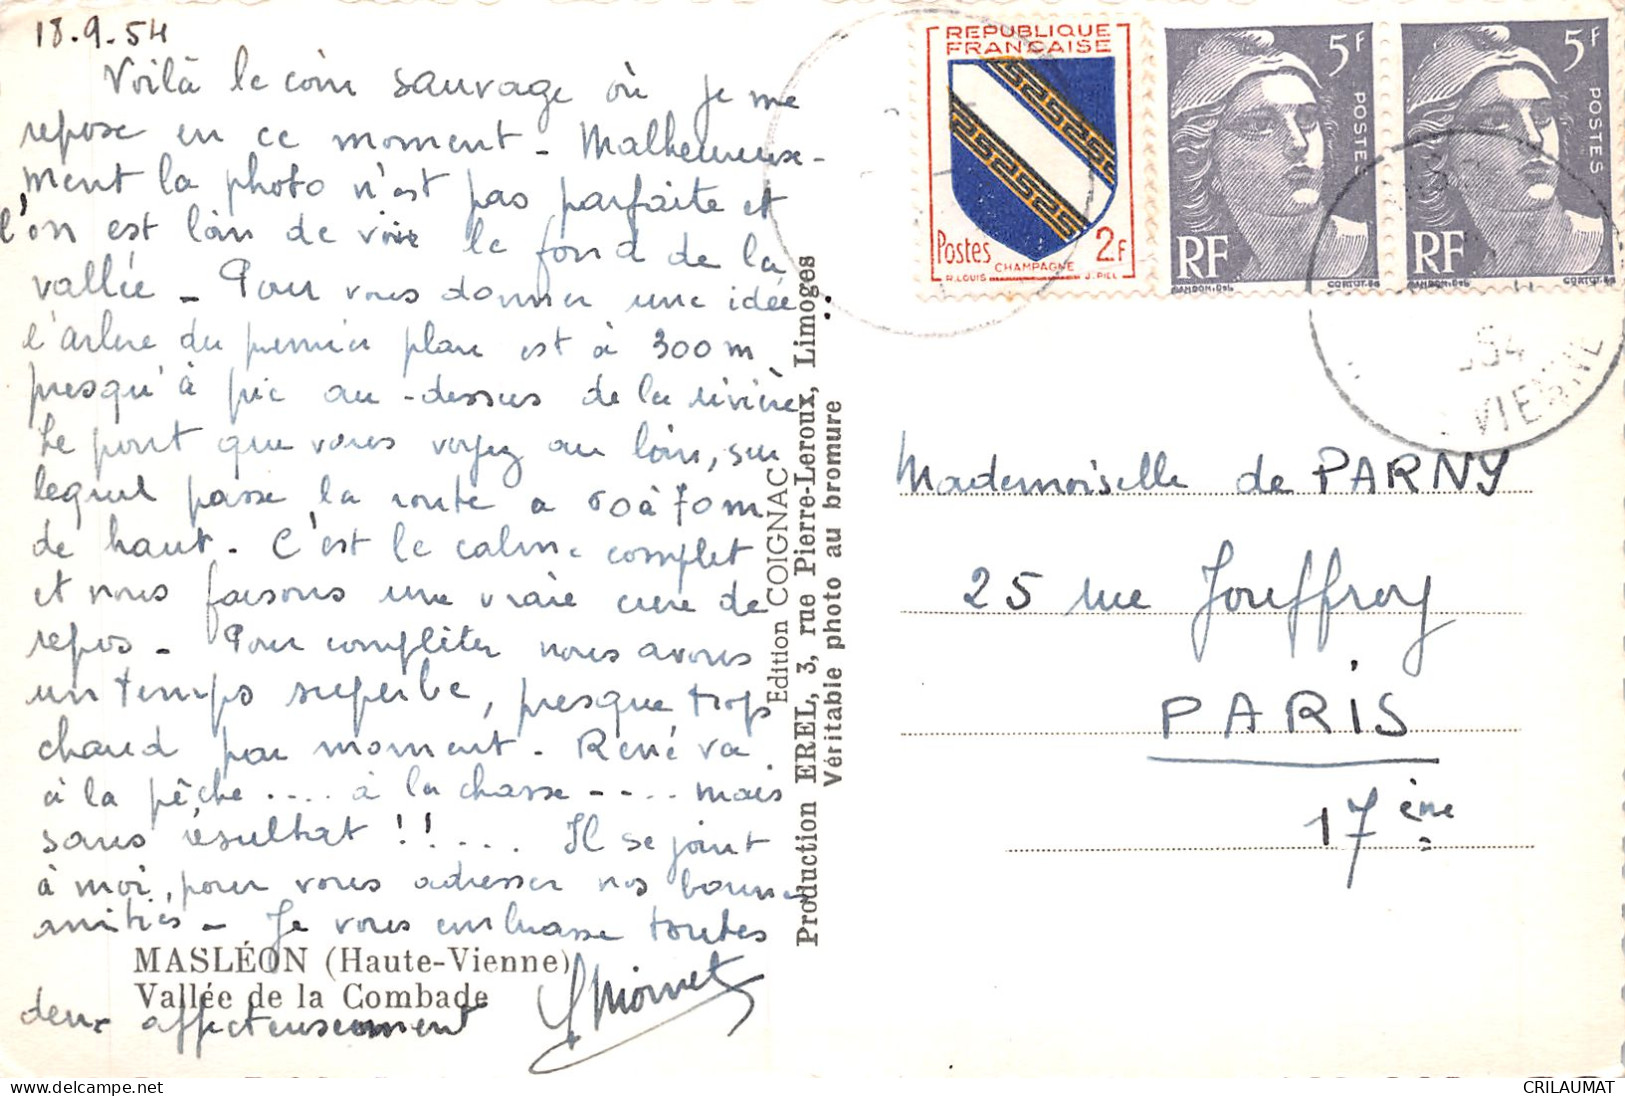 18.9.54
Voilà le coin sauvage où je me
repose en ce moment - Malheureuse-
ment la photo n'est pas parfaite et
l'on est loin de voir le fond de la
vallée - Pour vous donner une idée
l'arbre du premier plan est à 300 m
presqu'à pic au-dessus de la rivière
Le pont que vous voyez au loin, sur
lequel passe la route a 60 à 70 m
de haut. C'est le calme complet
et nous faisons une vraie cure de
repos - Pour compléter nous avons
un temps superbe, presque trop
chaud par moment - René va
à la pêche .... à la chasse - - .. mais
sans résultat !! .... Il se joint
à moi, pour vous adresser nos bonnes
amitiés - Je vous embrasse toutes
deux affectueusement
MASLÉON (Haute-Vienne)
Vallée de la Combade
Edition COIGNAC
Production EREL, 3, rue Pierre-Leroux, Limoges
Véritable photo au bromure
REPUBLIQUE
FRANÇAISE
Postes 2F
CHAMPAGNE
R. LOUIS J. PIEL
5F
POSTES
RF
GANDON.DEL CORTOT.SC
5F
POSTES
RF
GANDON.DEL CORTOT.SC
54
VIENNE
Mademoiselle de PARNY
25 rue Jouffroy
PARIS
17ème
CRILAUMAT